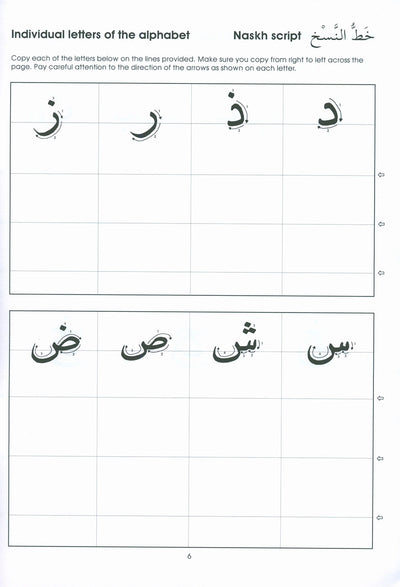 Individual letters of the alphabet Naskh script خَطُّ النَّسْخ
Copy each of the letters below on the lines provided. Make sure you copy from right to left across the
page. Pay careful attention to the direction of the arrows as shown on each letter.
د ذ ر ز
س ش ص ض
6